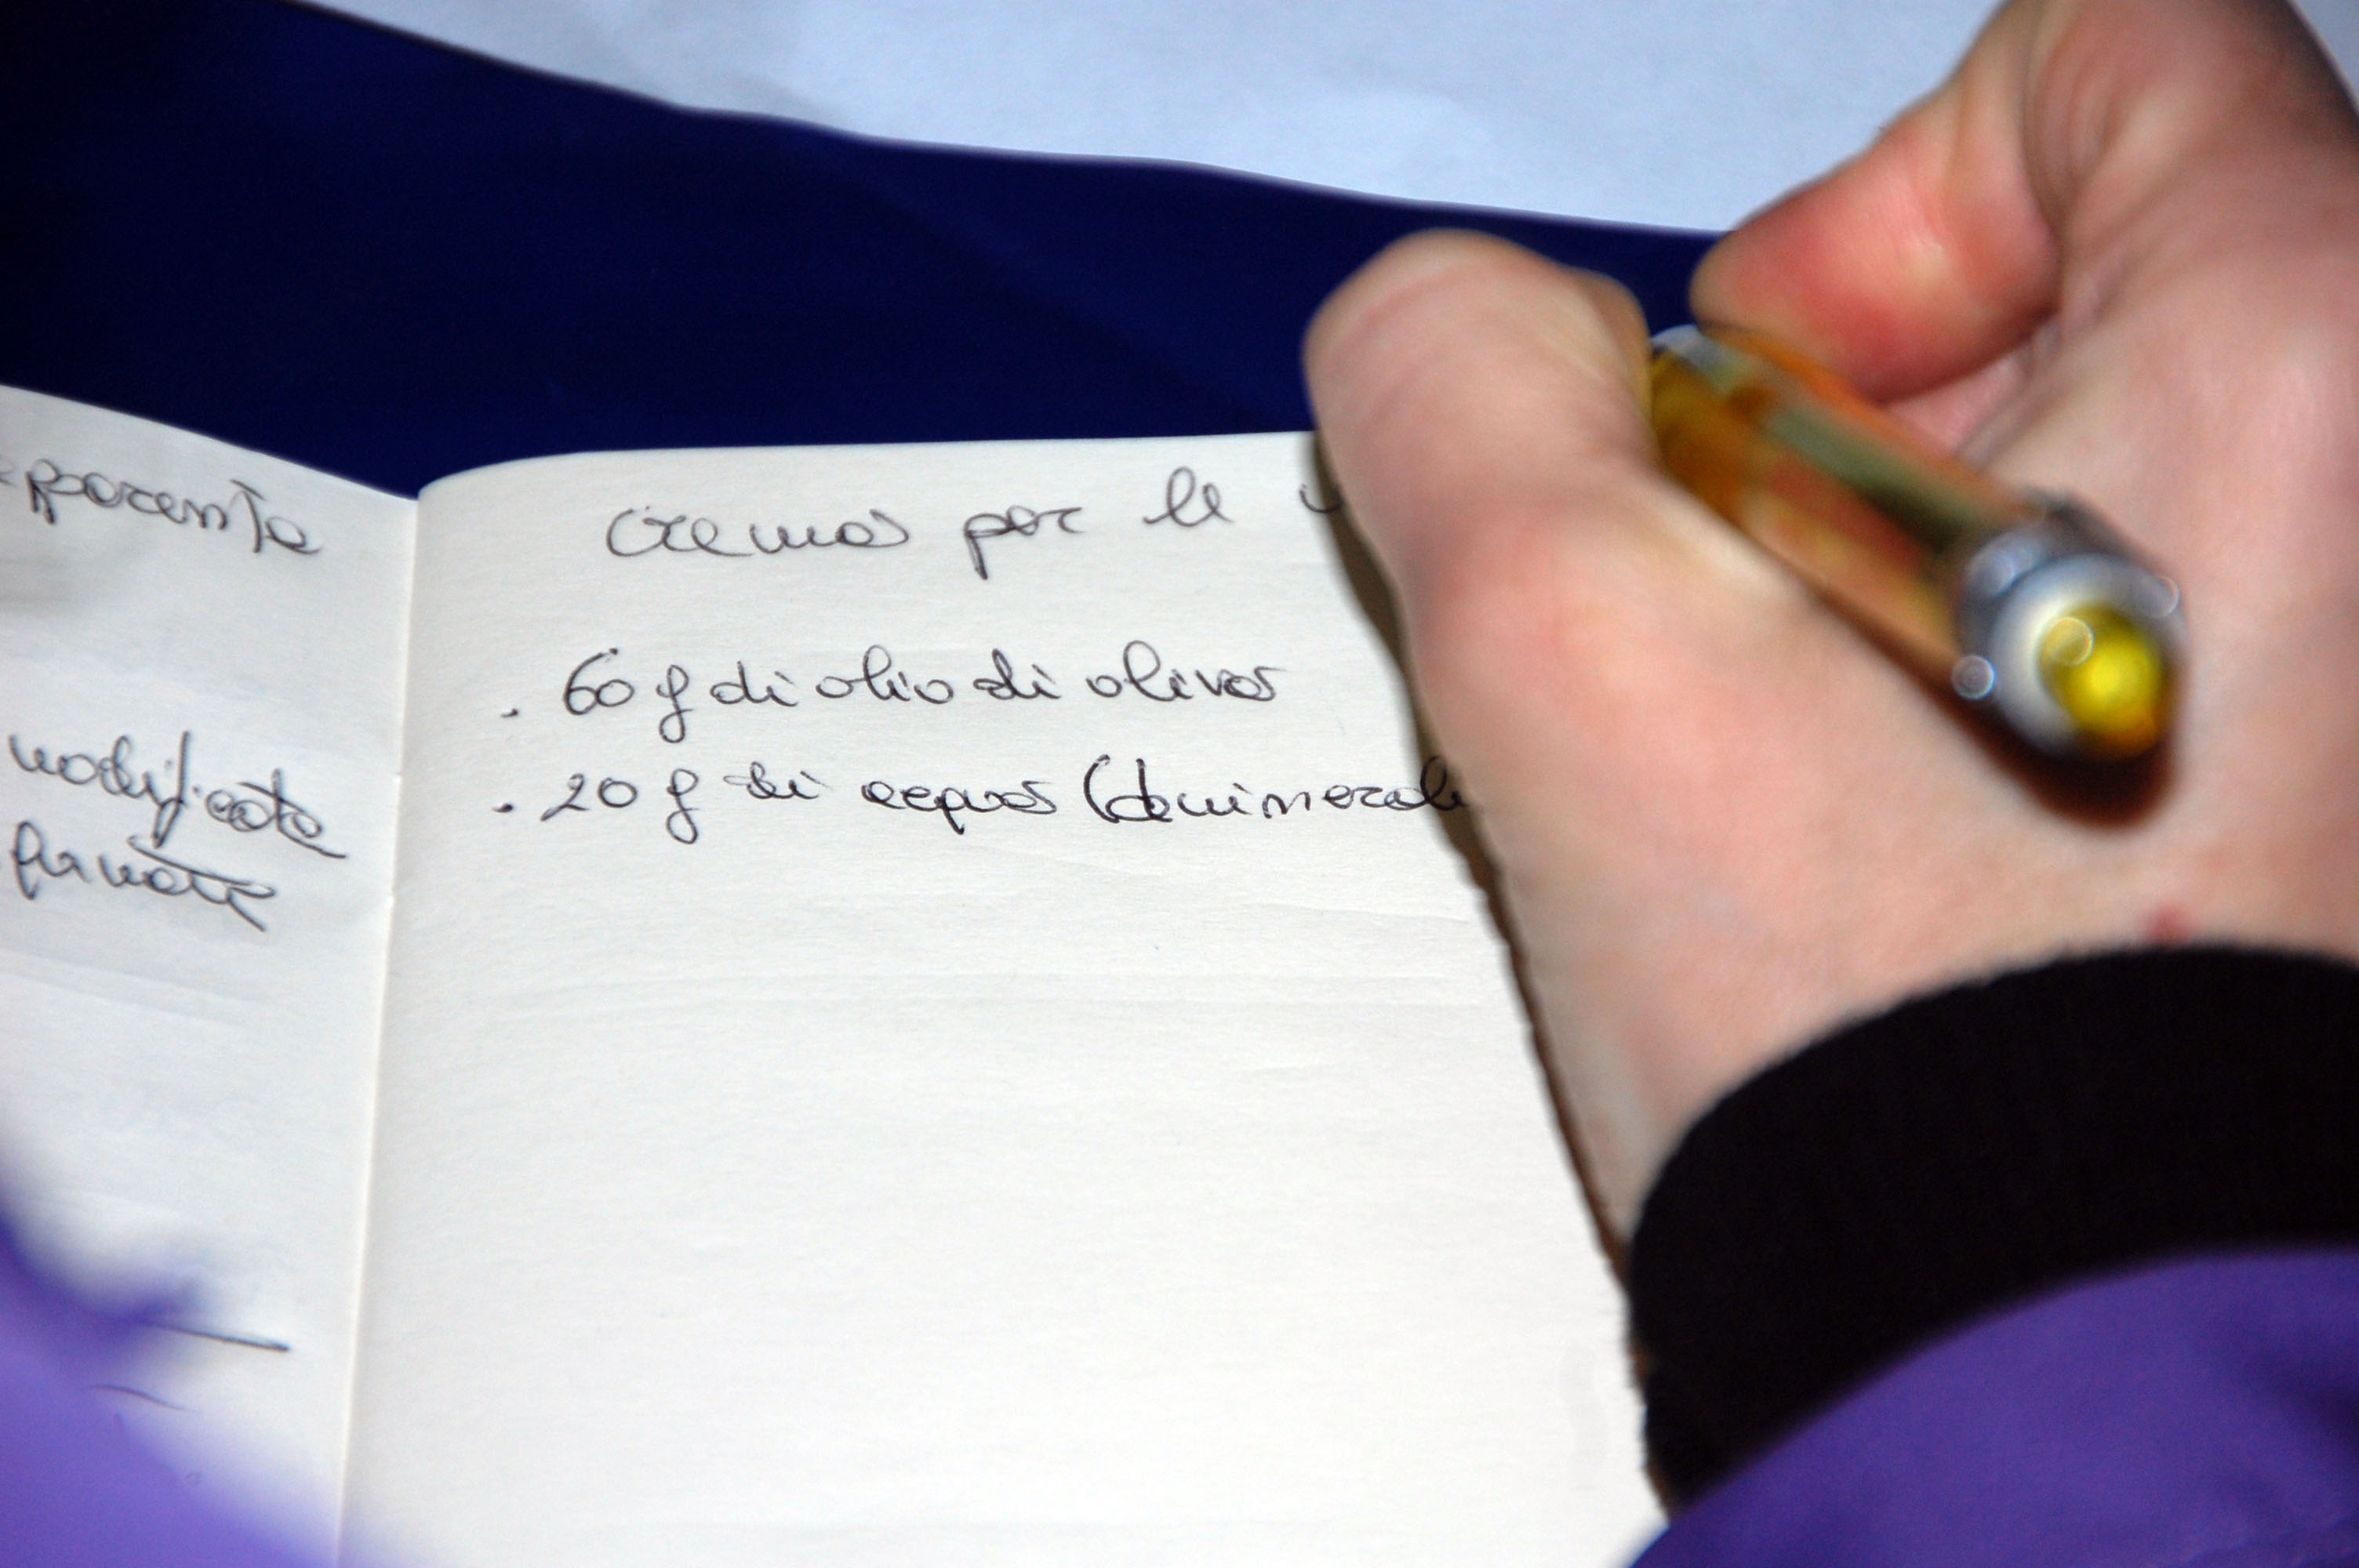 modificate
Crema per le
. 60 g di olio di oliva
. 20 g di acqua (deminerali